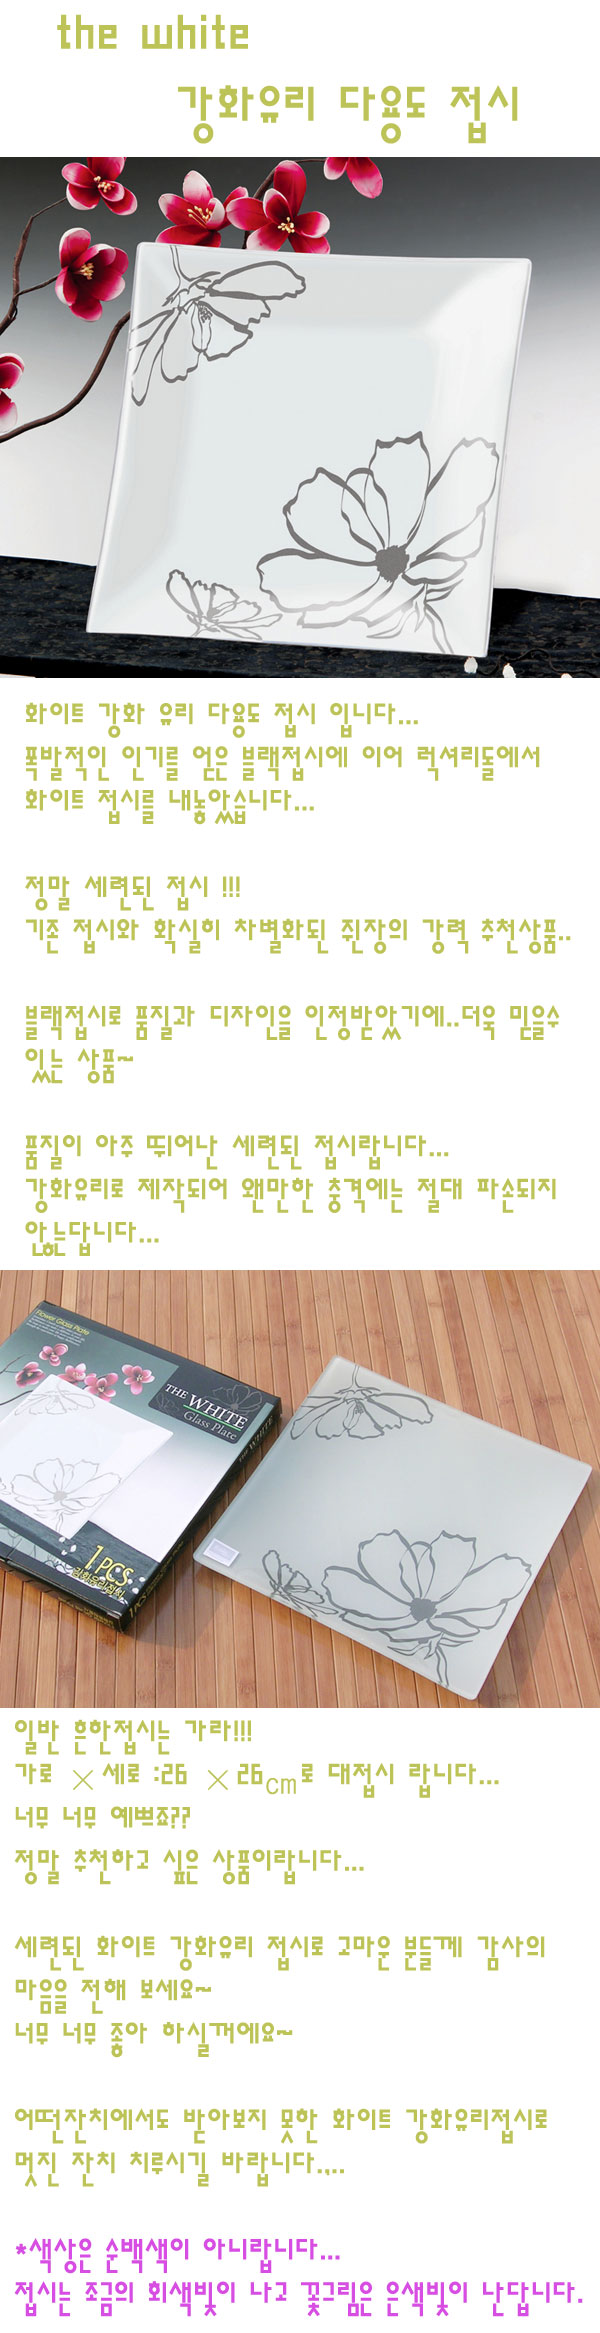 the white
강화유리 다용도 접시
화이트 강화 유리 다용도 접시 입니다...
폭발적인 인기를 얻은 블랙접시에 이어 럭셔리돌에서
화이트 접시를 내놓았습니다...
정말 세련된 접시 !!!
기존 접시와 확실히 차별화된 쥔장의 강력 추천상품..
블랙접시로 품질과 디자인을 인정받았기에..더욱 믿을수
있는 상품~
품질이 아주 뛰어난 세련된 접시랍니다...
강화유리로 제작되어 왠만한 충격에는 절대 파손되지
않는답니다...
Flower Glass Plate
THE WHITE
Glass Plate
1PCS
강화유리접시
일반 흔한접시는 가라!!!
가로 ×세로 :26 ×26cm로 대접시 랍니다...
너무 너무 예쁘죠??
정말 추천하고 싶은 상품이랍니다...
세련된 화이트 강화유리 접시로 고마운 분들께 감사의
마음을 전해 보세요~
너무 너무 좋아 하실꺼에요~
어떤잔치에서도 받아보지 못한 화이트 강화유리접시로
멋진 잔치 치루시길 바랍니다.,..
*색상은 순백색이 아니랍니다...
접시는 조금의 회색빛이 나고 꽃그림은 은색빛이 난답니다.